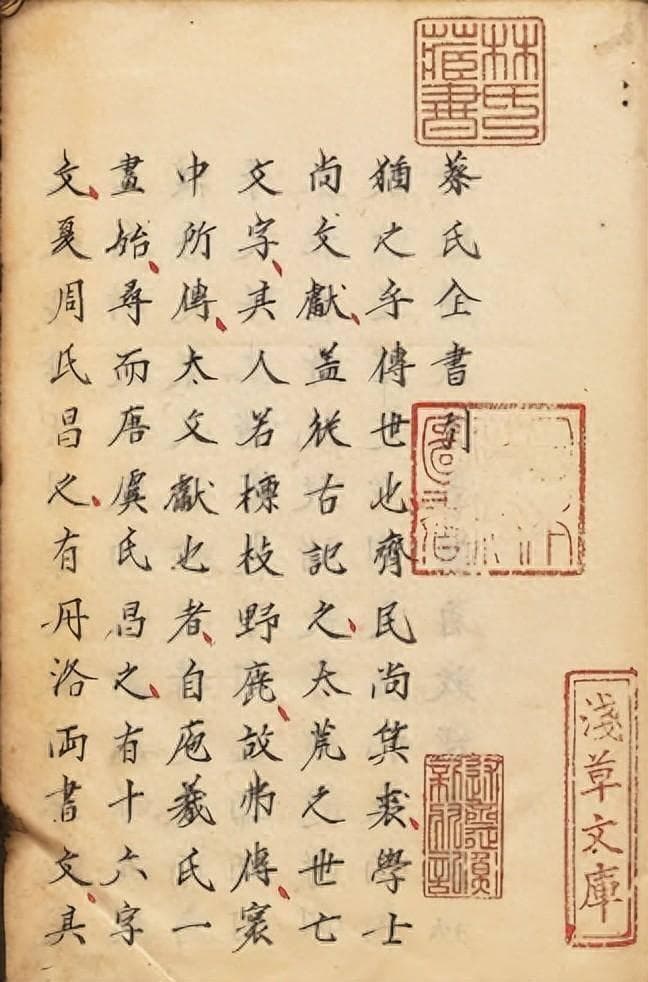 林氏藏書
蔡氏全書引
猶之乎傳世也齊民尚箕裘學士
尚文獻盖從古記之太荒之世亡
文字其人若標枝野鹿故弗傳寰
中所傳太文獻也者自庖羲氏一
畫始尋而唐虞氏昌之有十六字
文夏周氏昌之有丹洛兩書文具
淺草文庫